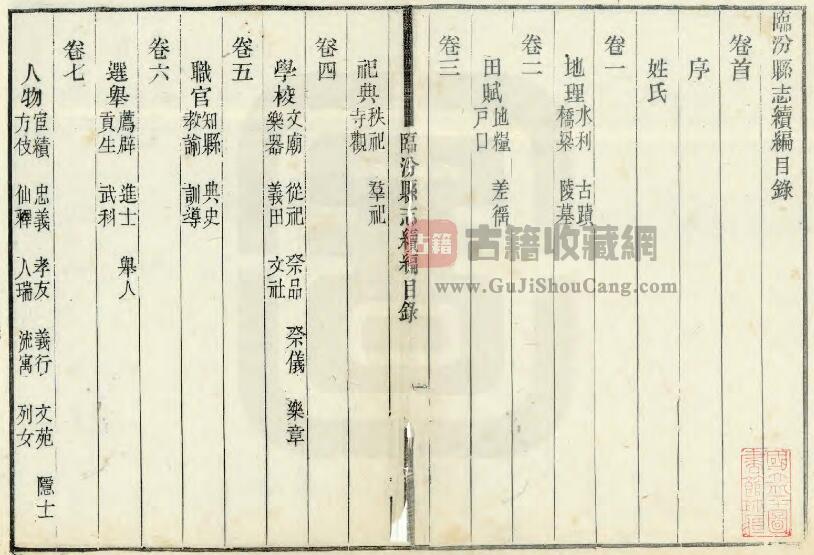 臨汾縣志續編目錄
卷首
序
姓氏
卷一
地理 水利 古蹟
橋梁 陵墓
卷二
田賦 地糧 差徭
戶口
卷三
臨汾縣志續編目錄 一
祀典 秩祀 羣祀
寺觀
卷四
學校 文廟 從祀 祭品 祭儀 樂章
樂器 義田 文社
卷五
職官 知縣 典史
教諭 訓導
卷六
選舉 薦辟 進士 舉人
貢生 武科
卷七
人物 宦績 忠義 孝友 義行 文苑 隱士
方伎 仙釋 人瑞 流寓 列女
古籍 古籍收藏網
www.GuJiShouCang.com